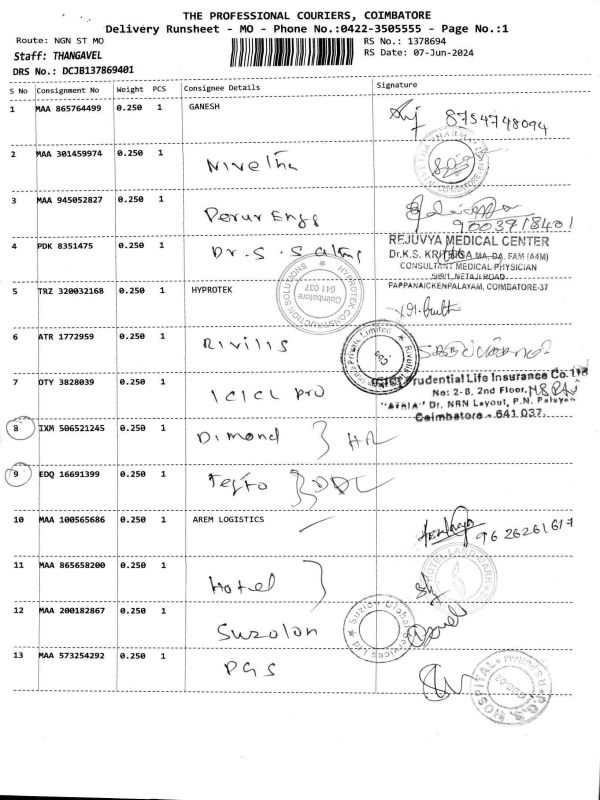 THE PROFESSIONAL COURIERS, COIMBATORE
Delivery Runsheet - MO - Phone No.:0422-3505555 - Page No.:1
Route: NGN ST MO
RS No.: 1378694
Staff: THANGAVEL
RS Date: 07-Jun-2024
DRS No.: DCJB137869401
S No Consignment No Weight PCS Consignee Details Signature
1 MAA 865764499 0.250 1 GANESH 8754748094
2 MAA 301459974 0.250 1 Nivetha
3 MAA 945052827 0.250 1 Perur Engg 9003918401
4 PDK 8351475 0.250 1 Dr. S.
REJUVYA MEDICAL CENTER
Dr.K.S. MA, DA, FAM (A4M)
CONSULTANT MEDICAL PHYSICIAN
NETAJI ROAD
PAPPANAICKENPALAYAM, COIMBATORE-37
5 TRZ 320032168 0.250 1 HYPROTEK
HYPROTEK CONSTRUCTION SOLUTIONS
Coimbatore
641 037
6 ATR 1772959 0.250 1 Rivilis
Private Limited
7 OTY 3828039 0.250 1 ICICI pro
ICICI Prudential Life Insurance Co. Ltd
No: 2-B, 2nd Floor,
Dr. NRN Layout, P.N. Palayam
Coimbatore - 641 037.
8 IXM 506521245 0.250 1 Dimond HR
9 EDQ 16691399 0.250 1
10 MAA 100565686 0.250 1 AREM LOGISTICS 9626261617
11 MAA 865658200 0.250 1 Hotel
12 MAA 200182867 0.250 1 Suzolon
Suzlon Global Services Ltd
13 MAA 573254292 0.250 1 PGS
HOSPITAL